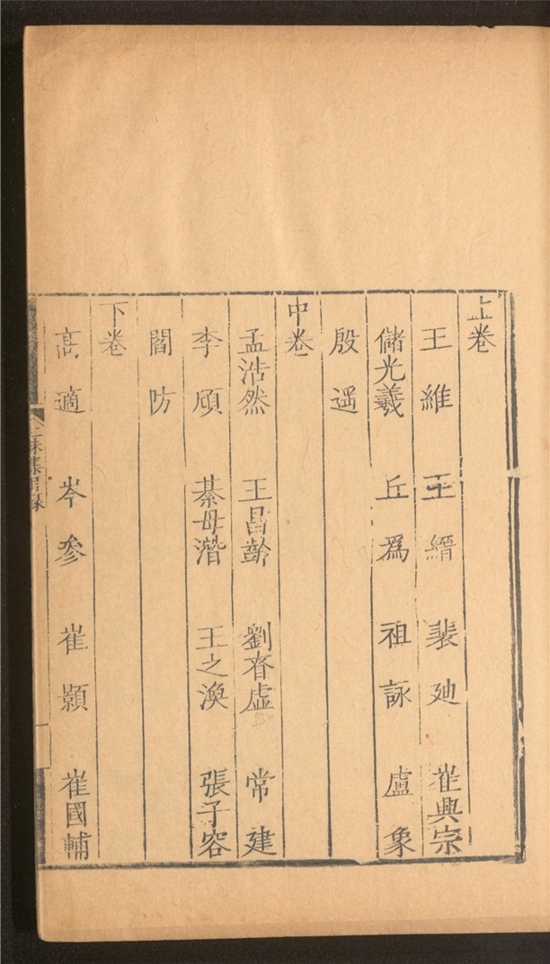 上卷
王維　王縉　裴廸　崔興宗
儲光羲　丘為　祖詠　盧象
殷遥
中卷
孟浩然　王昌齡　劉眘虛　常建
李頎　綦毋潛　王之渙　張子容
閻防
下卷
高適　岑參　崔顥　崔國輔
三昧集目錄